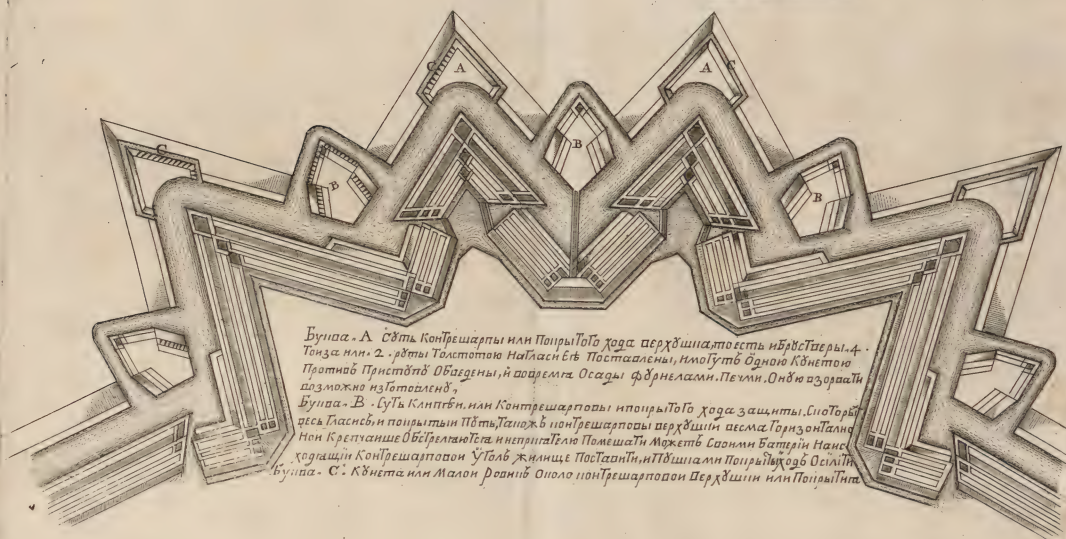 C A
A C
B
C
B
B
Бꙋква. A Сꙋть Контрешарпы или Покрытого хода верхꙋшка, то есть и Брꙋстверы. 4.
Тоиза или. 2. рꙋты Толстотою На Гласи Еѣ Поставлены, и могꙋтъ Одною Кꙋнетою
Противъ Пристꙋпꙋ Обведены, й вовремя Осады фꙋрнелами. Печми. Оную взорвати
возможно изготовленꙋ,
Бꙋква. B. Сꙋть Клипгеи, или Контрешарповы и покрытого хода защиты. С которы
весь Гласисъ, и покрытыи Пꙋть, Такожъ контрешарповы верхꙋшки весма Горизонтално
Нои Крепчаише Обстреляются и неприятелю Помешати Можетъ Своими Батерїи На ис
ходящїи Контрешарповои Уголъ жилище Поставити, и Пꙋшками Покрытыходъ Осілїти
Бꙋква. C. Кꙋнета или Малои Ровикъ Около контрешарповои Верхꙋшки или